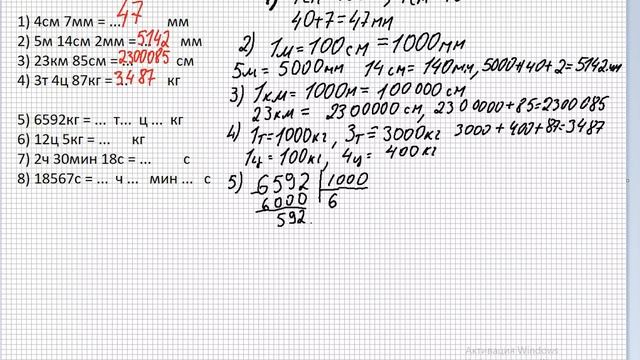 1) 4см 7мм = ... 47 мм
2) 5м 14см 2мм = ... 5142 мм
3) 23км 85см = ... 2300085 см
4) 3т 4ц 87кг = ... 3487 кг
5) 6592кг = ... т... ц ... кг
6) 12ц 5кг = ... кг
7) 2ч 30мин 18с = ... с
8) 18567с = ... ч ... мин ... с
40+7=47мм
2) 1м=100см=1000мм
5м=5000мм 14см=140мм, 5000+140+2=5142мм
3) 1км=1000м=100000см
23км= 2300000см, 2300000+85=2300085
4) 1т=1000кг, 3т=3000кг 3000+400+87=3487
1ц=100кг, 4ц=400кг
5) 6592 1000
6000 6
592
Активация Windows